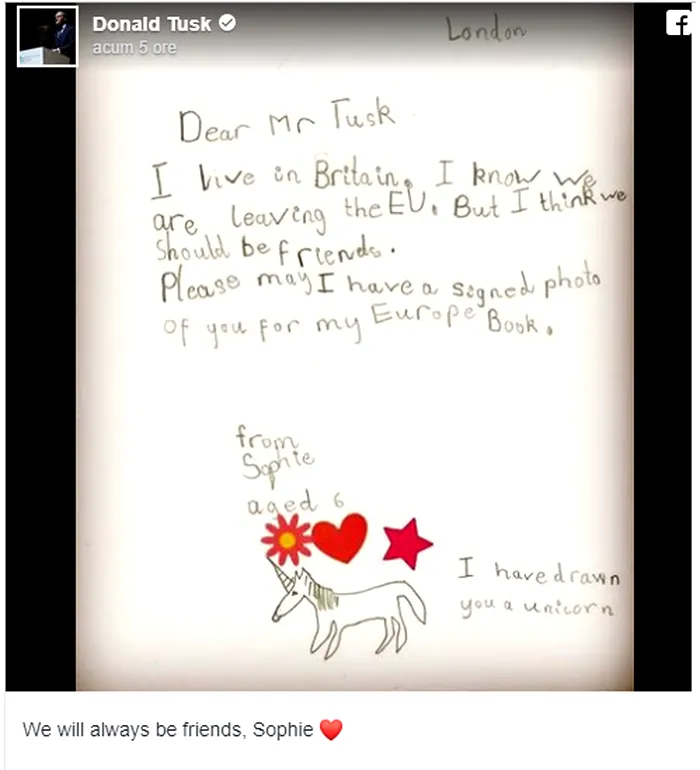 Donald Tusk
acum 5 ore
London
Dear Mr Tusk
I live in Britain. I know we
are leaving the EU. But I think we
should be friends.
Please may I have a signed photo
of you for my Europe Book.
from
Sophie
aged 6
I have drawn
you a unicorn
We will always be friends, Sophie ❤️